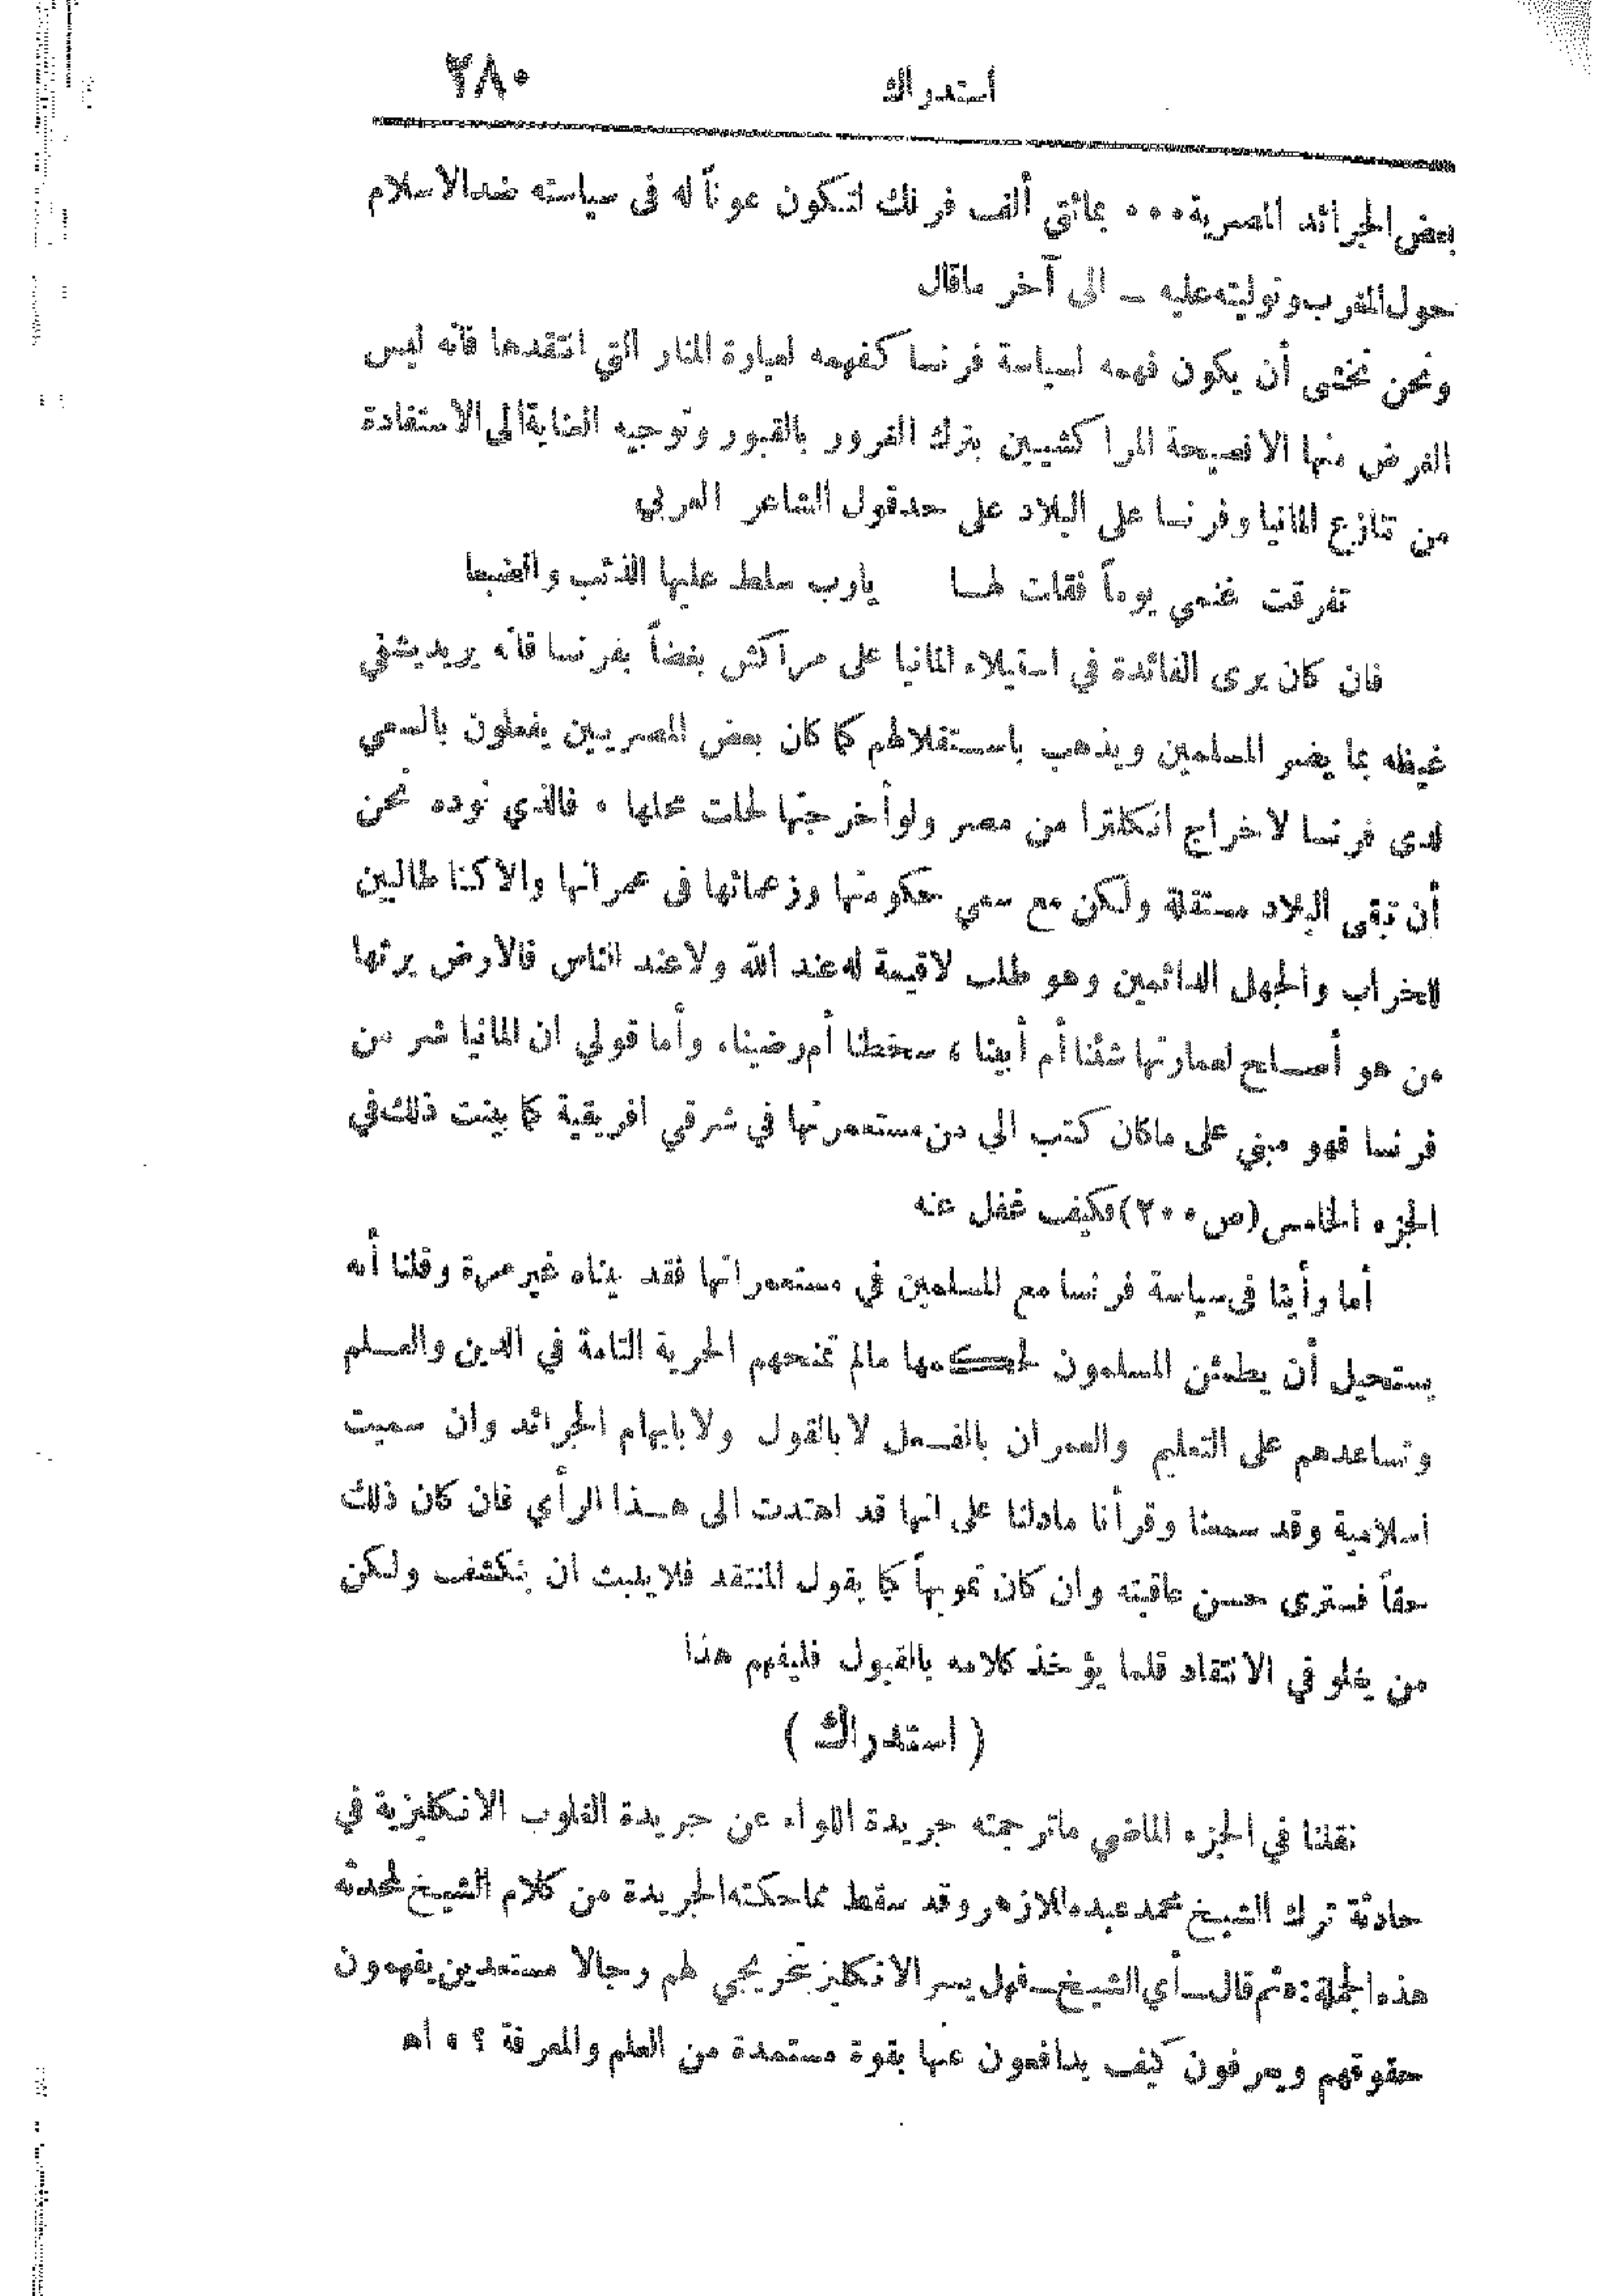 استدراك ٢٨٠
بعض الجرائد المصرية ٠٠٠ بمائتي ألف فرنك لتكون عوناً له في سياسته ضد الاسلام
حول المغرب وتوليته عليه ــ الى آخر ماقال
ونحن نخشى أن يكون فهمه لسياسة فرنسا كفهمه لعبارة المنار التي انتقدها فانه ليس
الغرض منها الا نصيحة المراكشيين بترك الغرور بالقبور وتوجيه العناية الى الاستفادة
من تنازع المانيا وفرنسا على البلاد على حد قول الشاعر العربي
تفرقت غنمي يوماً فقلت لهـا يارب سلط عليها الذئب والضبعا
فان كان يرى الفائدة في استيلاء المانيا على مراكش بغضاً بفرنسا فانه يريد يشفي
غيظه بما يضر المسلمين ويذهب باستقلالهم كما كان بعض المصريين يفعلون بالسعي
لدى فرنسا لاخراج انكلترا من مصر ولو أخرجتها لحلت محلها ٠ فالذي نوده نحن
أن تبقى البلاد مستقلة ولكن مع سعي حكومتها وزعمائها في عمرانها والا كنا طالبين
للخراب والجهل الدائمين وهو طلب لاقيمة له عند الله ولا عند الناس فالارض يرثها
من هو أصـلح لعمارتها شئنا أم أبينا ، سخطنا أم رضينا، وأما قولي ان المانيا شر من
فرنسا فهو مبني على ماكان كتب الي من مستعمرتها في شرقي افريقية كما بينت ذلك في
الجزء الخامس (ص ٢٠٠) فكيف غفل عنه
أما رأينا في سياسة فرنسا مع المسلمين في مستعمراتها فقد بيناه غير مرة وقلنا أنه
يستحيل أن يطمئن المسلمون لحكمها مالم تمنحهم الحرية التامة في الدين والعـلم
وتساعدهم على التعليم والعمران بالفـعل لا بالقول ولا بايهام الجرائد وان سميت
اسلامية وقد سمعنا وقرأنا مادلنا على انها قد اهتدت الى هـذا الرأي فان كان ذلك
حقاً فسترى حسن عاقبته وان كان تمويهاً كما يقول المنتقد فلا يلبث ان ينكشف ولكن
من يغلو في الانتقاد قلما يؤخذ كلامه بالقبول فليفهم هذا
( استدراك )
نقلنا في الجزء الماضي ماترجمته جريدة اللواء عن جريدة الغلوب الانكليزية في
حادثة ترك الشيخ محمد عبده للازهر وقد سقط مماحكته الجريدة من كلام الشيخ لمحدثه
هذه الجملة: «ثم قال ــ أي الشيخ ــ فهل يسر الانكليز تخريجي لهم رجالا مستعدين يفهمون
حقوقهم ويعرفون كيف يدافعون عنها بقوة مستمدة من العلم والمعرفة ؟ » اه